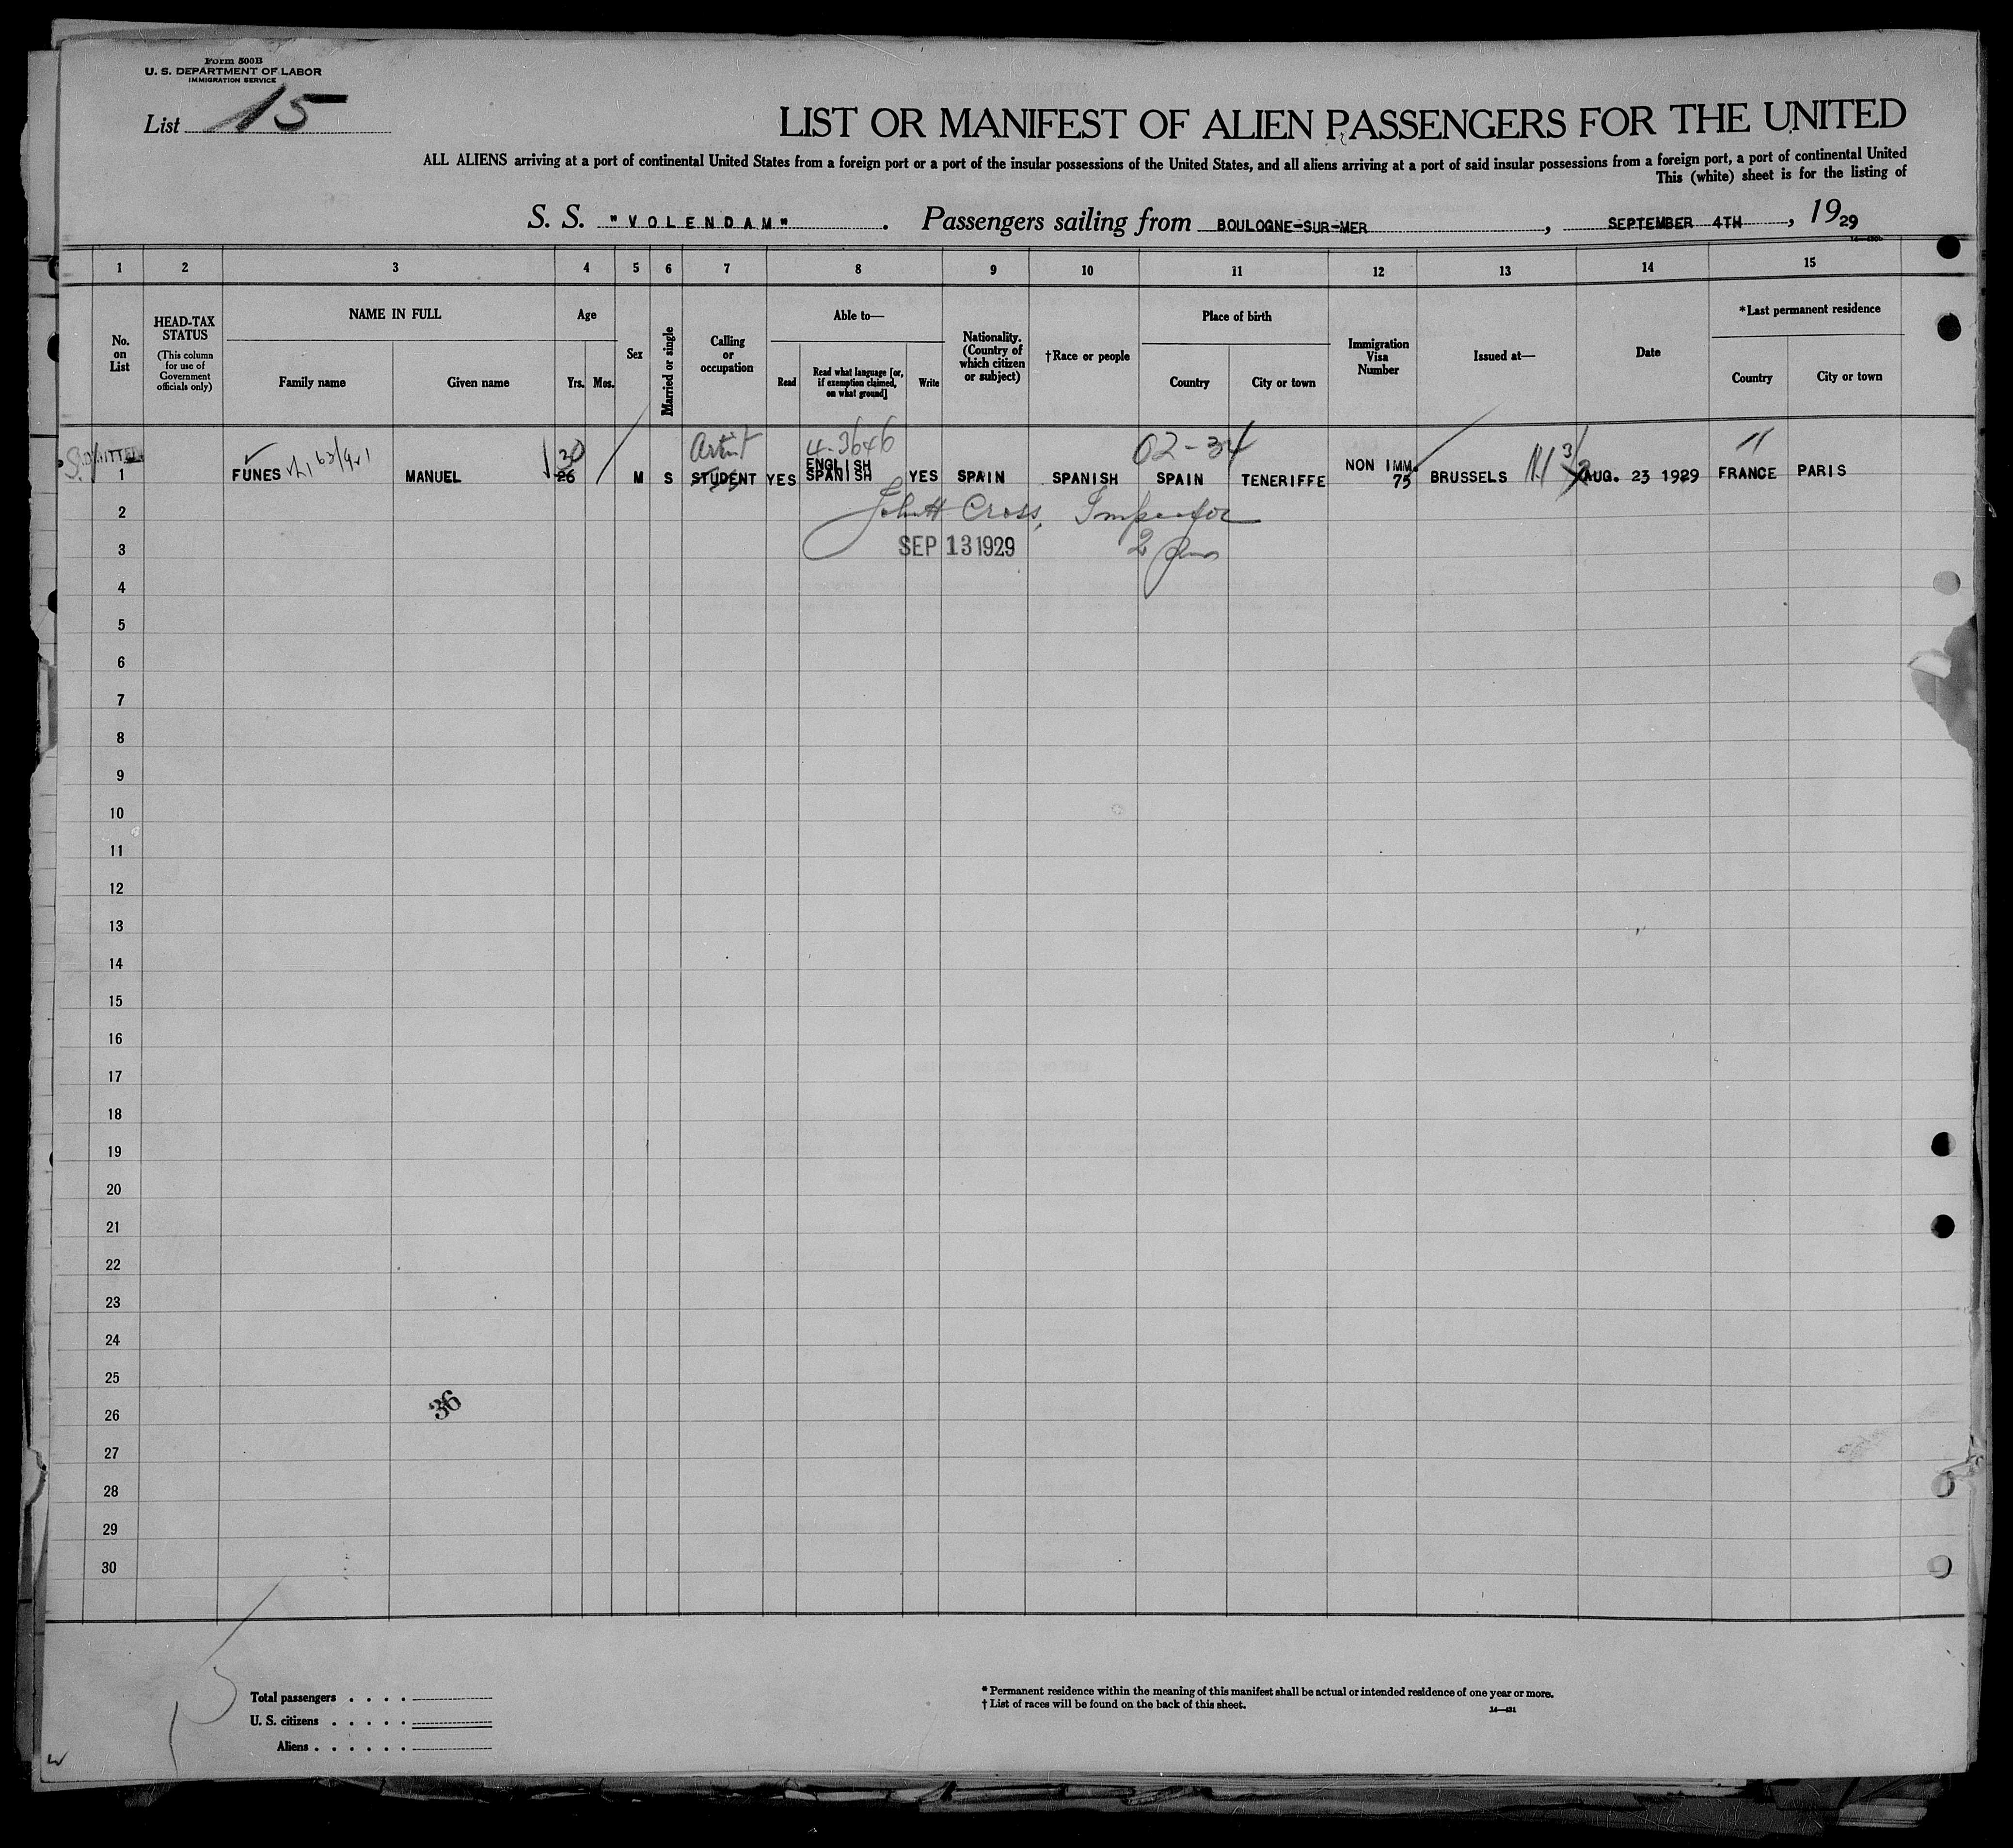 Form 500B
U. S. DEPARTMENT OF LABOR
IMMIGRATION SERVICE
List 15
LIST OR MANIFEST OF ALIEN PASSENGERS FOR THE UNITED
ALL ALIENS arriving at a port of continental United States from a foreign port or a port of the insular possessions of the United States, and all aliens arriving at a port of said insular possessions from a foreign port, a port of continental United
This (white) sheet is for the listing of
S. S. "VOLENDAM". Passengers sailing from BOULOGNE-SUR-MER, SEPTEMBER 4TH, 1929
1 2 3 4 5 6 7 8 9 10 11 12 13 14 15
No. on List
HEAD-TAX STATUS
(This column for use of Government officials only)
NAME IN FULL
Family name
Given name
Age
Yrs. Mos.
Sex
Married or single
Calling or occupation
Able to—
Read
Read what language [or, if exemption claimed, on what ground]
Write
Nationality. (Country of which citizen or subject)
†Race or people
Place of birth
Country
City or town
Immigration Visa Number
Issued at—
Date
*Last permanent residence
Country
City or town
Artist 4-3646 02-34
30 ENGLISH NON IMM.
1 FUNES MANUEL 26 M S STUDENT YES SPANISH YES SPAIN SPANISH SPAIN TENERIFFE 75 BRUSSELS AUG. 23 1929 FRANCE PARIS
2 John H Cross, Inspector
3 SEP 13 1929
4
5
6
7
8
9
10
11
12
13
14
15
16
17
18
19
20
21
22
23
24
25
26 36
27
28
29
30
Total passengers . . . .
U. S. citizens . . . . .
Aliens . . . . . .
* Permanent residence within the meaning of this manifest shall be actual or intended residence of one year or more.
† List of races will be found on the back of this sheet.
14—431